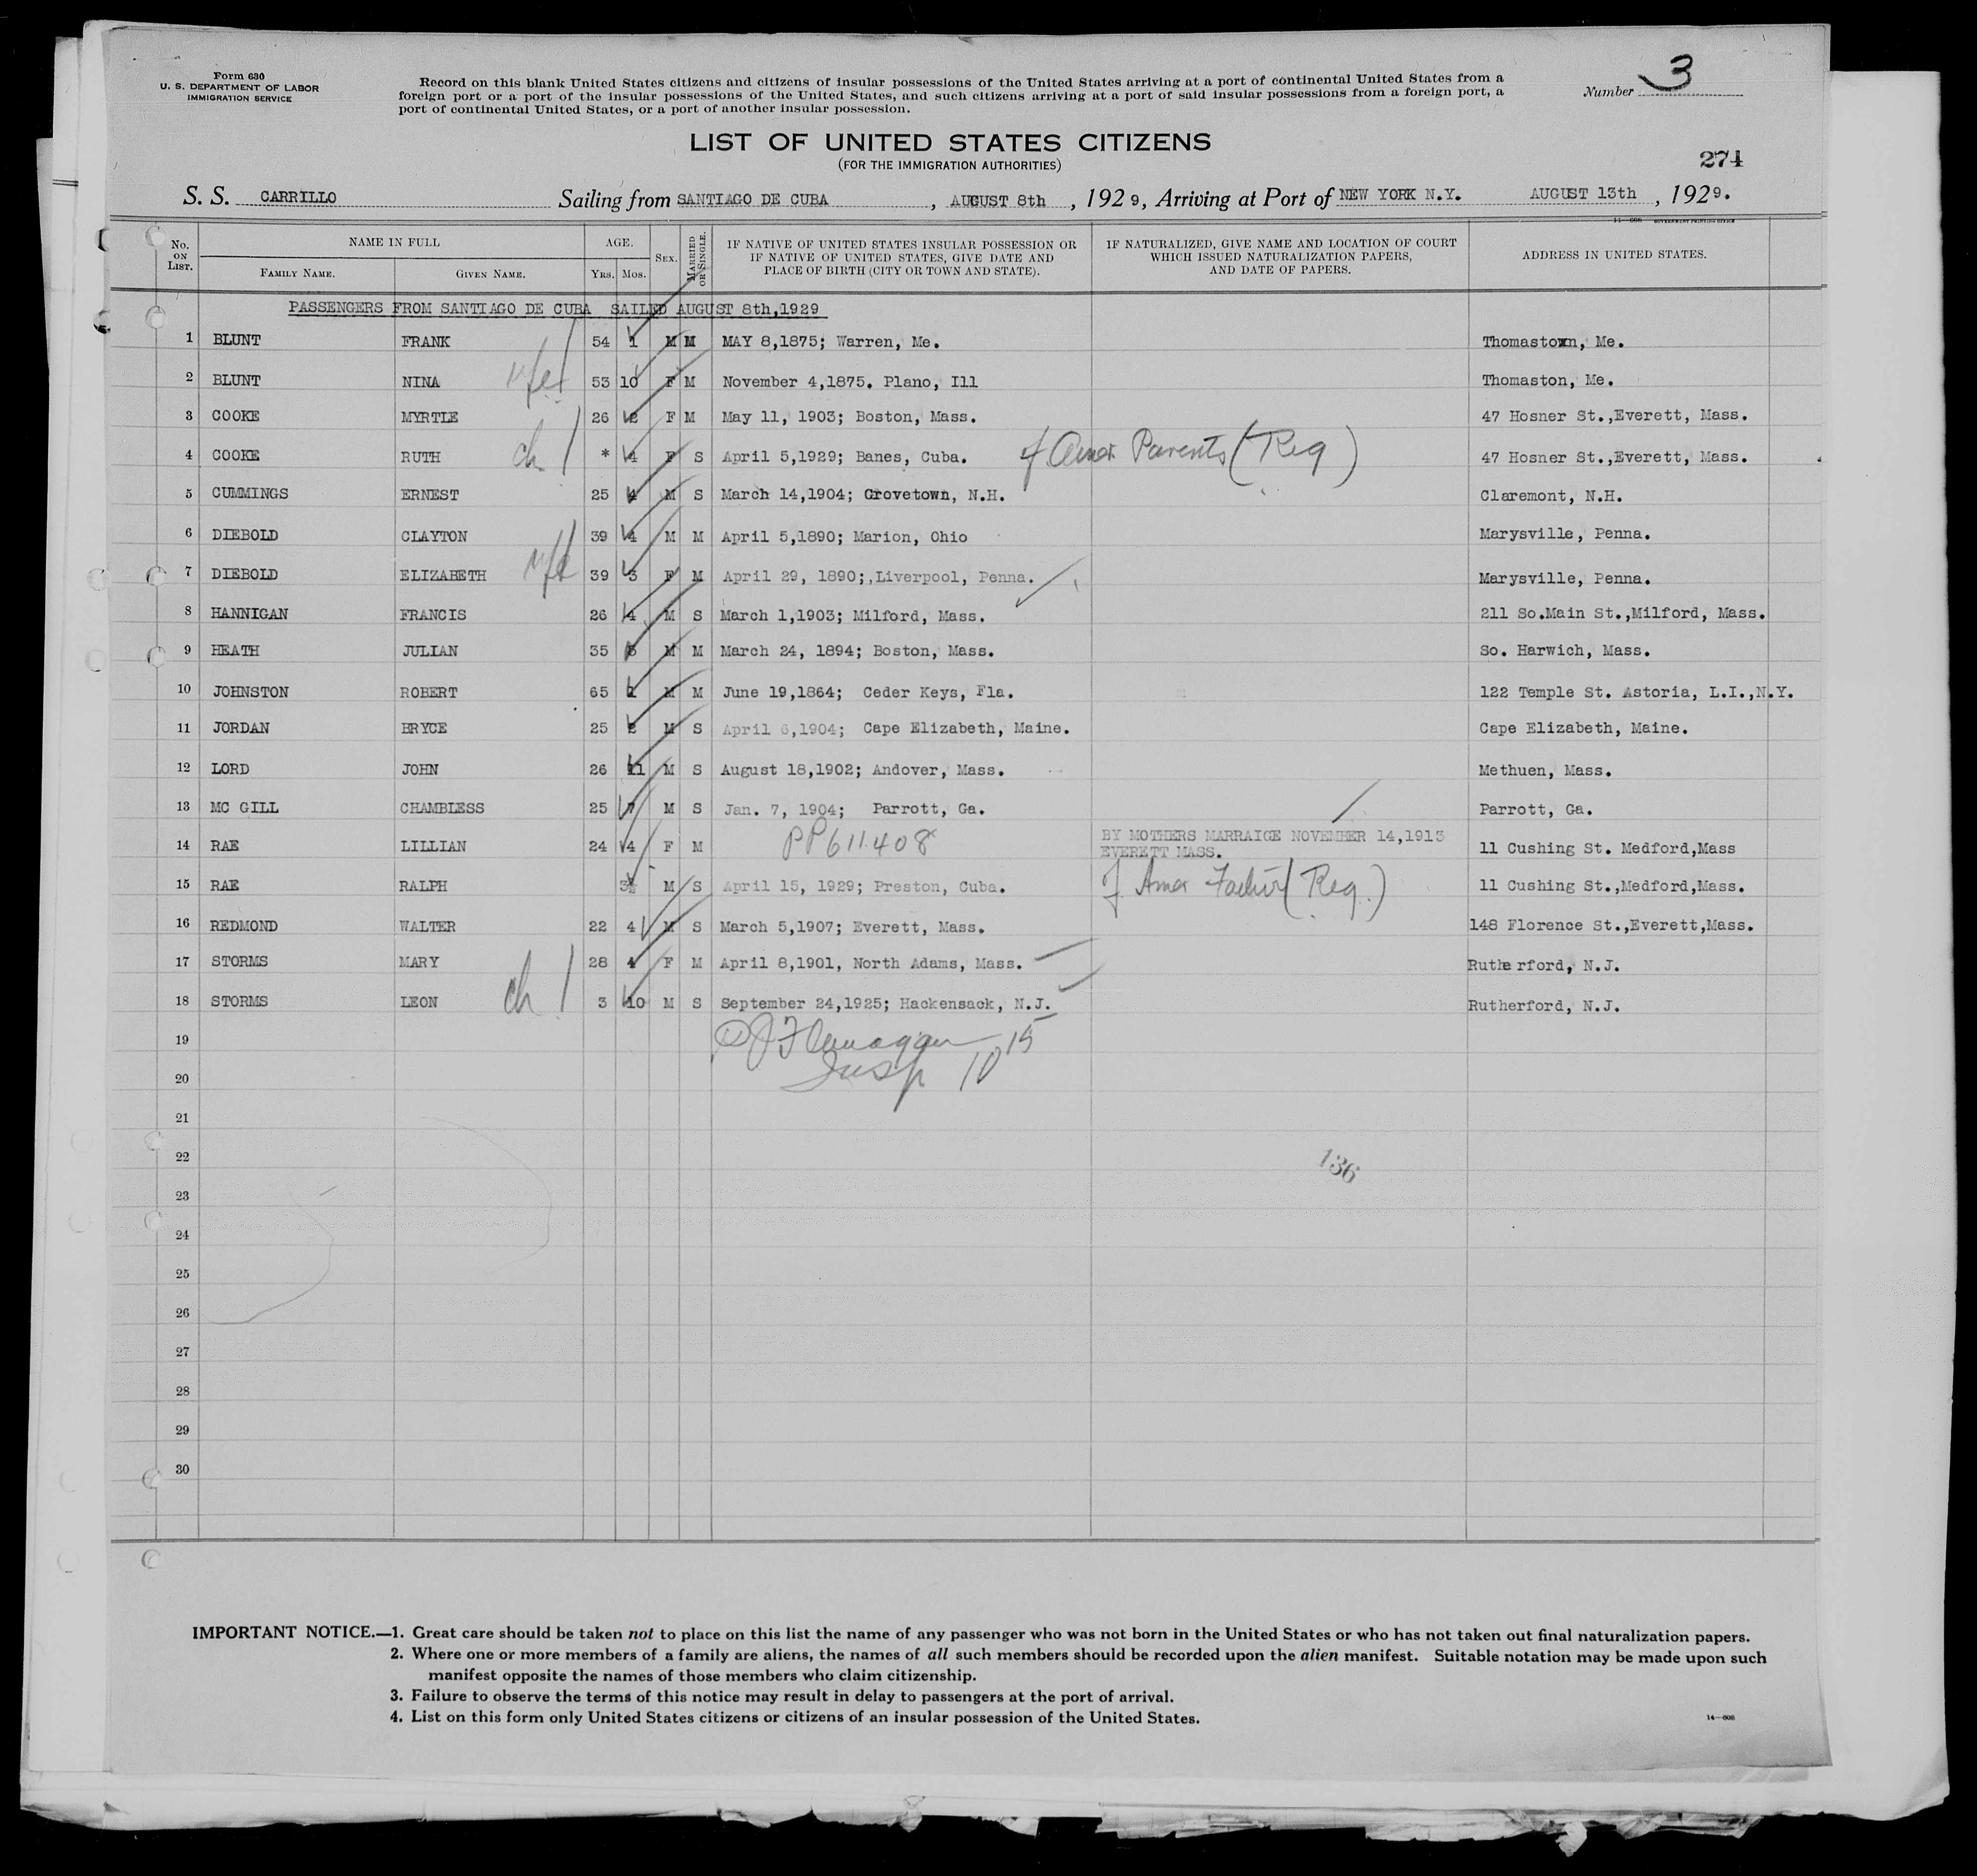 Form 630
U. S. DEPARTMENT OF LABOR
IMMIGRATION SERVICE
Record on this blank United States citizens and citizens of insular possessions of the United States arriving at a port of continental United States from a
foreign port or a port of the insular possessions of the United States, and such citizens arriving at a port of said insular possessions from a foreign port, a
port of continental United States, or a port of another insular possession.
Number 3
LIST OF UNITED STATES CITIZENS
(FOR THE IMMIGRATION AUTHORITIES)
274
S. S. CARRILLO Sailing from SANTIAGO DE CUBA, AUGUST 8th, 1929, Arriving at Port of NEW YORK N.Y. AUGUST 13th, 1929.
No. ON LIST. NAME IN FULL FAMILY NAME. GIVEN NAME. AGE. YRS. MOS. SEX. MARRIED OR SINGLE. IF NATIVE OF UNITED STATES INSULAR POSSESSION OR IF NATIVE OF UNITED STATES, GIVE DATE AND PLACE OF BIRTH (CITY OR TOWN AND STATE). IF NATURALIZED, GIVE NAME AND LOCATION OF COURT WHICH ISSUED NATURALIZATION PAPERS, AND DATE OF PAPERS. ADDRESS IN UNITED STATES.
PASSENGERS FROM SANTIAGO DE CUBA SAILED AUGUST 8th,1929
1 BLUNT FRANK 54 1 M M MAY 8,1875; Warren, Me. Thomastown, Me.
2 BLUNT NINA 53 10 F M November 4,1875. Plano, Ill Thomaston, Me.
3 COOKE MYRTLE 26 2 F M May 11, 1903; Boston, Mass. 47 Hosner St.,Everett, Mass.
4 COOKE RUTH ch * 4 F S April 5,1929; Banes, Cuba. of Amer Parents (Reg) 47 Hosner St.,Everett, Mass.
5 CUMMINGS ERNEST 25 4 M S March 14,1904; Grovetown, N.H. Claremont, N.H.
6 DIEBOLD CLAYTON 39 4 M M April 5,1890; Marion, Ohio Marysville, Penna.
7 DIEBOLD ELIZABETH 39 3 F M April 29, 1890;,Liverpool, Penna. Marysville, Penna.
8 HANNIGAN FRANCIS 26 4 M S March 1,1903; Milford, Mass. 211 So.Main St.,Milford, Mass.
9 HEATH JULIAN 35 M M March 24, 1894; Boston, Mass. So. Harwich, Mass.
10 JOHNSTON ROBERT 65 M M June 19,1864; Ceder Keys, Fla. 122 Temple St. Astoria, L.I.,N.Y.
11 JORDAN BRYCE 25 M S April 6,1904; Cape Elizabeth, Maine. Cape Elizabeth, Maine.
12 LORD JOHN 26 11 M S August 18,1902; Andover, Mass. Methuen, Mass.
13 MC GILL CHAMBLESS 25 7 M S Jan. 7, 1904; Parrott, Ga. Parrott, Ga.
14 RAE LILLIAN 24 4 F M PP611408 BY MOTHERS MARRAIGE NOVEMBER 14,1913 EVERETT MASS. 11 Cushing St. Medford,Mass
15 RAE RALPH M S April 15, 1929; Preston, Cuba. of Amer Father (Reg.) 11 Cushing St.,Medford,Mass.
16 REDMOND WALTER 22 4 M S March 5,1907; Everett, Mass. 148 Florence St.,Everett,Mass.
17 STORMS MARY 28 4 F M April 8,1901, North Adams, Mass. Rutherford, N.J.
18 STORMS LEON ch 3 10 M S September 24,1925; Hackensack, N.J. Rutherford, N.J.
19 Flanagan
20 Insp 10 15
21
22 136
23
24
25
26
27
28
29
30
IMPORTANT NOTICE.—1. Great care should be taken not to place on this list the name of any passenger who was not born in the United States or who has not taken out final naturalization papers.
2. Where one or more members of a family are aliens, the names of all such members should be recorded upon the alien manifest. Suitable notation may be made upon such
manifest opposite the names of those members who claim citizenship.
3. Failure to observe the terms of this notice may result in delay to passengers at the port of arrival.
4. List on this form only United States citizens or citizens of an insular possession of the United States.